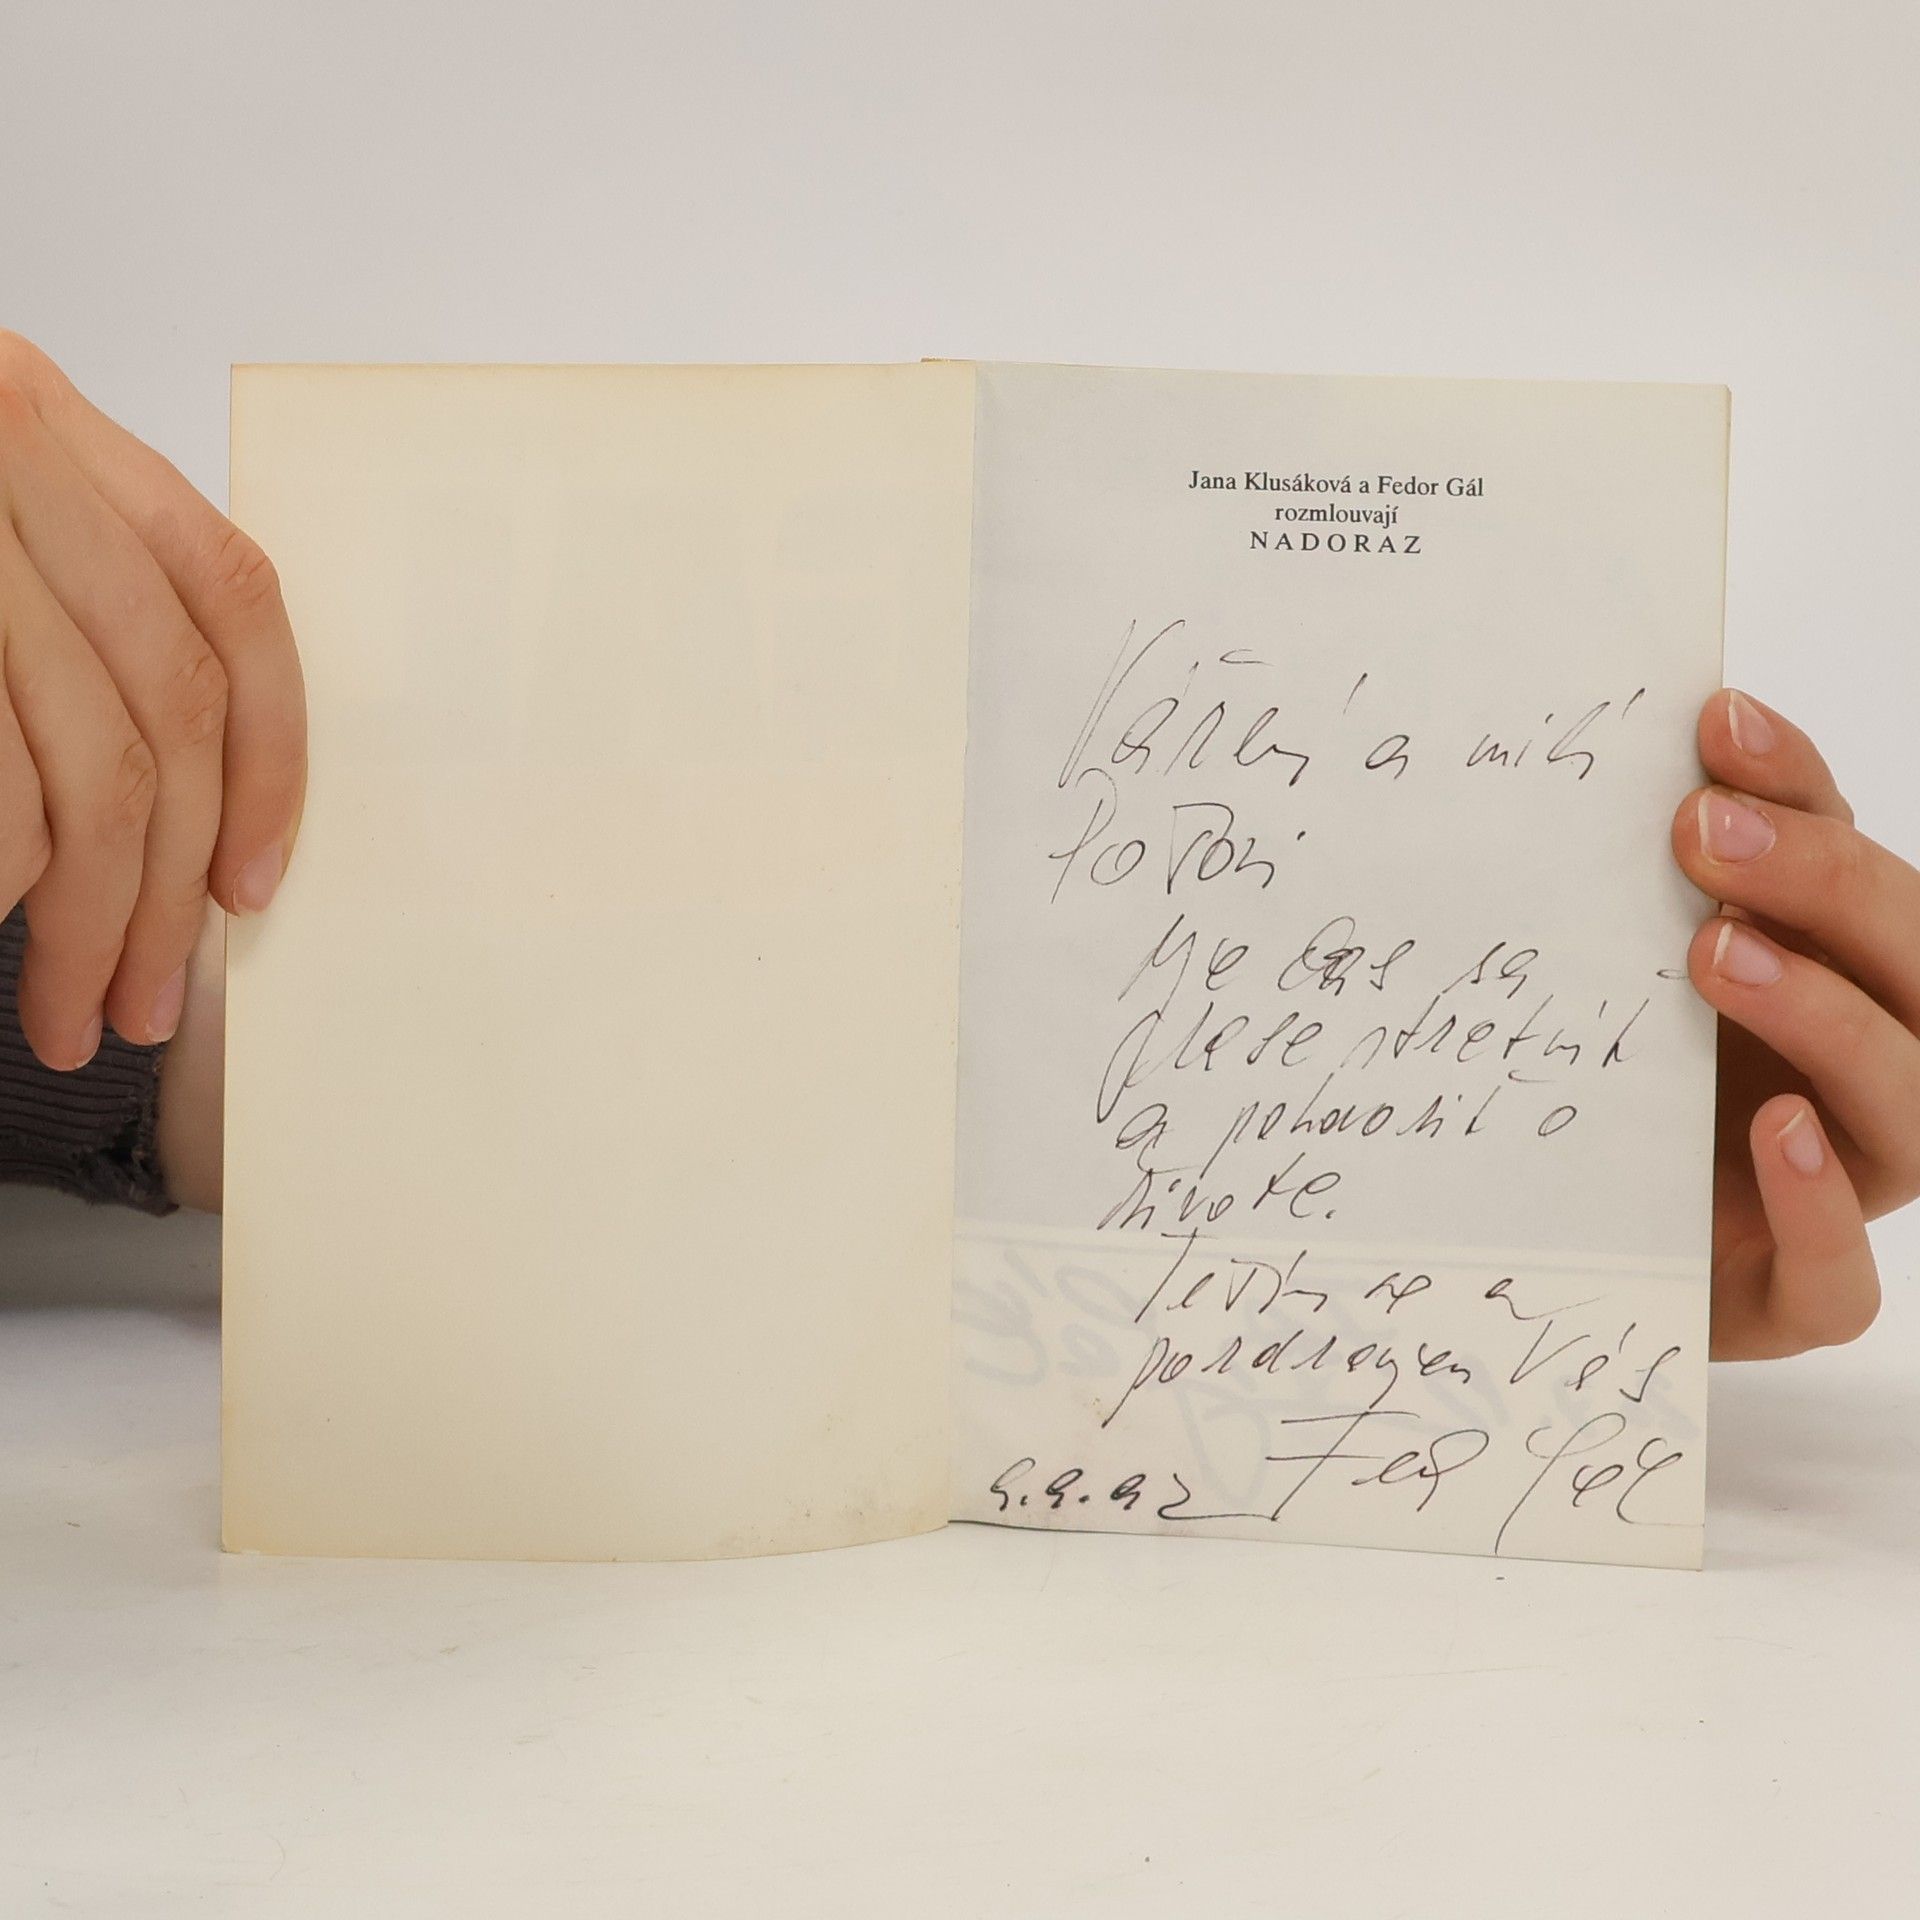 Jana Klusáková a Fedor Gál
rozmlouvají
NADORAZ
Vážený a milý
Je čas sa
stretnúť
a pohovoriť o
živote.
Teším se a
pozdravujem Vás
Fedor Gál
9.9.92